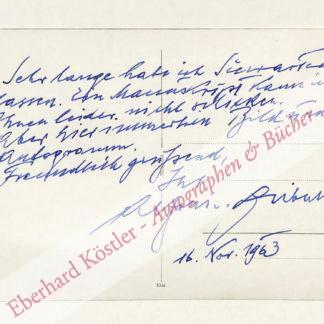 Sehr lange habe ich Sie warten
lassen. Ein Manuskript kann ich
Ihnen leider nicht schicken.
Aber hier immerhin Bild u.
Autogramm.
Freundlich grüßend
Ihr
16. Nov. 1963
Eberhard Köstler - Autographen & Bücher